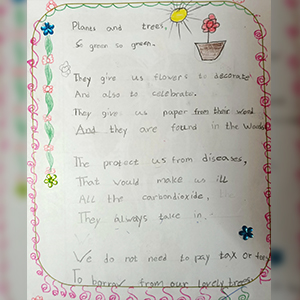 Plants and trees,
So green so green.
They give us flowers to decorate
And also to celebrate.
They give us paper from their wood
And they are found in the woods
The protect us from diseases,
That would make us ill
All the carbondioxide,
They always take in.
We do not need to pay tax or
To borrow from our lovely trees